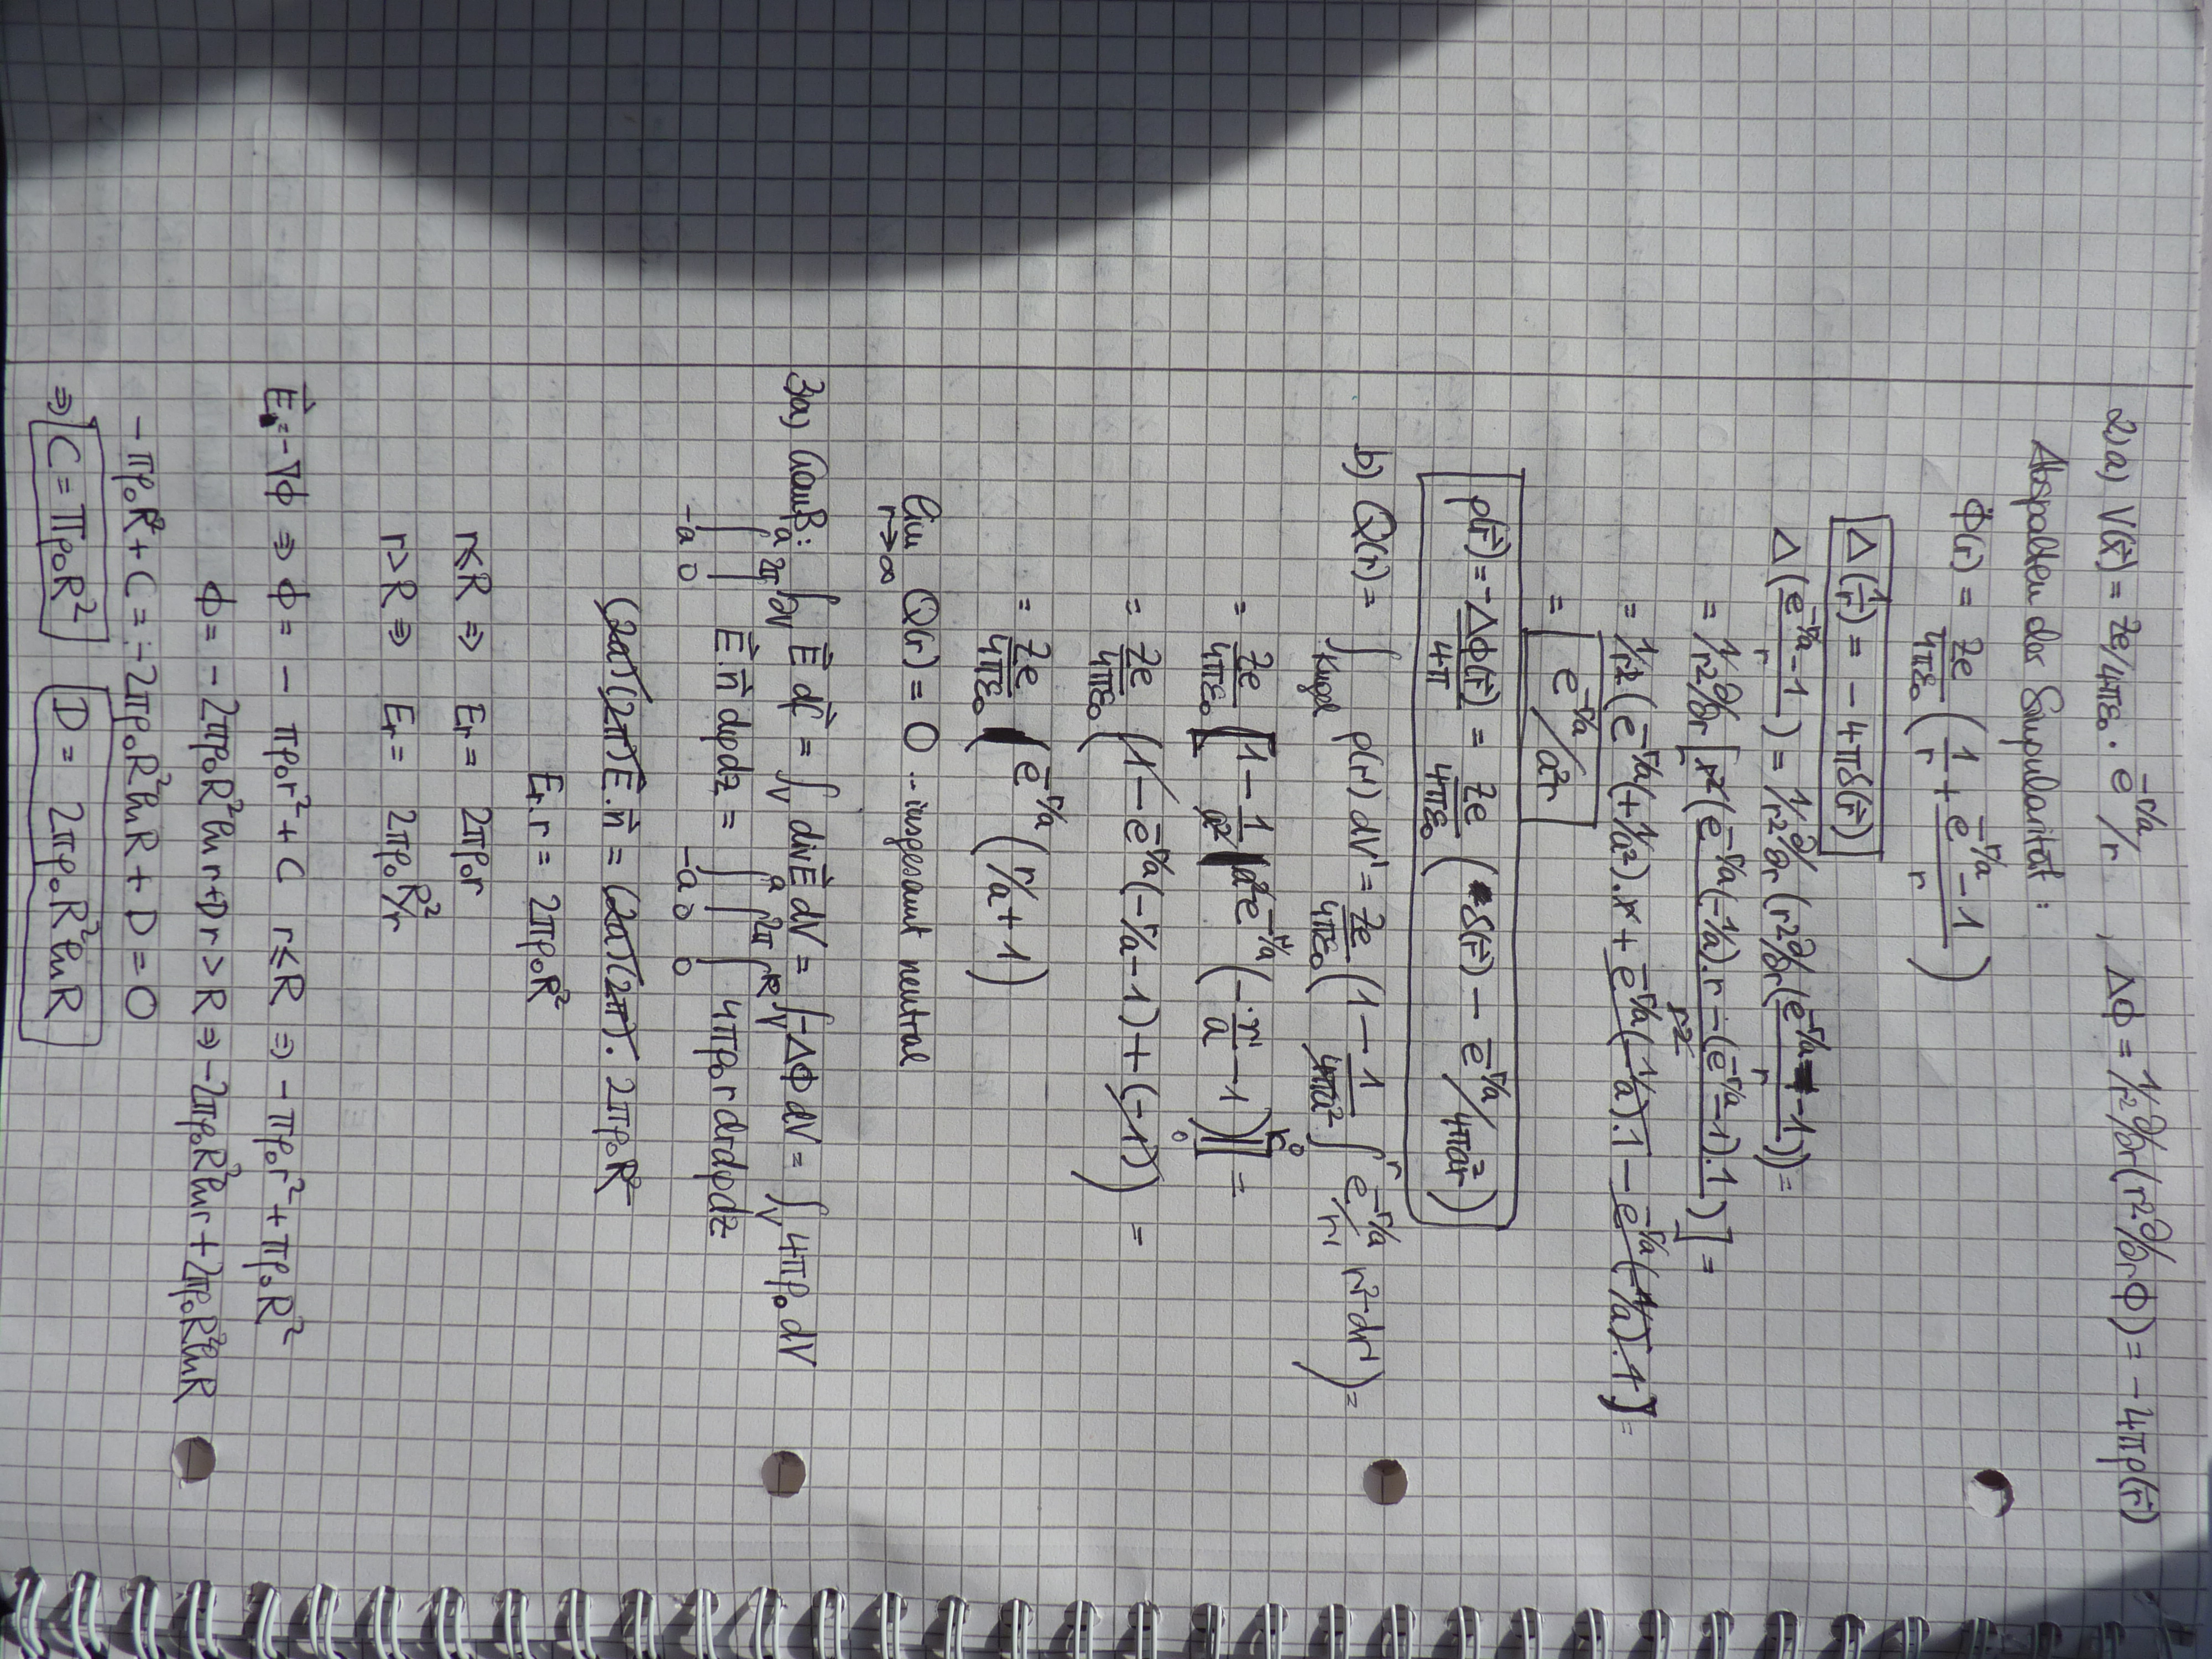 2) a) V(x⃗) = Ze/4πε₀ · e^(-r/a)/r , Δϕ = 1/r² ∂/∂r (r² ∂/∂r ϕ) = -4πρ(r⃗)
Abspalten der Singularität:
ϕ(r) = Ze/4πε₀ (1/r + (e^(-r/a) - 1)/r)
Δ(1/r) = -4πδ(r⃗)
Δ((e^(-r/a) - 1)/r) = 1/r² ∂/∂r (r² ∂/∂r ((e^(-r/a) - 1)/r)) =
= 1/r² ∂/∂r [r² (e^(-r/a)(-1/a)·r - (e^(-r/a) - 1)·1)/r²] =
= 1/r² (e^(-r/a)(+1/a²)·r + e^(-r/a)(-1/a)·1 - e^(-r/a)(-1/a)·1] =
= e^(-r/a)/a²r
ρ(r⃗) = -Δϕ(r⃗)/4π = Ze/4πε₀ (δ(r⃗) - e^(-r/a)/4πa²r)
b) Q(r) = ∫_Kugel ρ(r') dV' = Ze/4πε₀ (1 - 1/4πa² · ∫^r e^(-r'/a)/r' r'² dr') =
= Ze/4πε₀ [1 - 1/a² a² e^(-r'/a) (-r'/a - 1)]|₀^r =
= Ze/4πε₀ (1 - e^(-r/a)(-r/a - 1) + (-1)) =
= Ze/4πε₀ (e^(-r/a) (r/a + 1)
lim_(r→∞) Q(r) = 0 .. insgesamt neutral
3)a) Gauß: ∫_∂V E⃗ df⃗ = ∫_V div E⃗ dV = ∫_V -Δϕ dV = ∫_V 4πρ₀ dV
∫_(-a)^a ∫_0^(2π) E⃗·n⃗ dφdz = ∫_(-a)^a ∫_0^(2π) ∫_0^R 4πρ₀r drdφdz
(2a)(2π)E⃗·n⃗ = (2a)(2π)· 2πρ₀R²
E_r·r = 2πρ₀R²
r<R ⇒ E_r = 2πρ₀r
r>R ⇒ E_r = 2πρ₀R²/r
E⃗ = -∇ϕ ⇒ ϕ = - πρ₀r² + C r≤R ⇒ -πρ₀r² + πρ₀R²
ϕ = -2πρ₀R² ln r + D r>R ⇒ -2πρ₀R² ln r + 2πρ₀R² ln R
-πρ₀R² + C = -2πρ₀R² ln R + D = 0
⇒ C = πρ₀R² D = 2πρ₀R² ln R